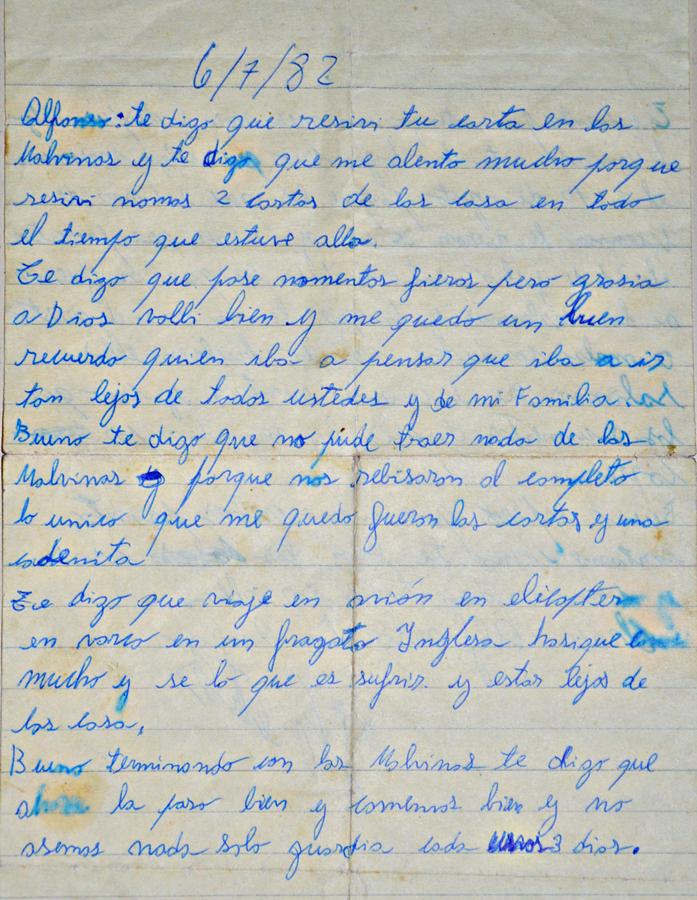 6/7/82
Alfonso: te digo que resivi tu carta en las
Malvinas y te digo que me alento mucho porque
resivi nomas 2 cartas de las casa en todo
el tiempo que estuve alla.
Te digo que pase momentos fieros pero grasia
a Dios volli bien y me quedo un buen
recuerdo quien iba a pensar que iba a ir
tan lejos de todos ustedes y de mi Familia.
Bueno te digo que no pude traer nada de las
Malvinas porque nos rebisaron al completo
lo unico que me quedo fueron las cartas y una
cadenita
Te digo que viaje en avión en elicopter
en varco en un fragata Inglesa harigue
mucho y se lo que es sufrir. y estar lejos de
las casa,
Bueno terminando con las Malvinas te digo que
ahora la paso bien y comemos bien y no
asemos nada solo guardia cada unos 3 dias.